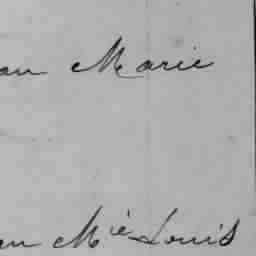 an Marie
an Mie Louis